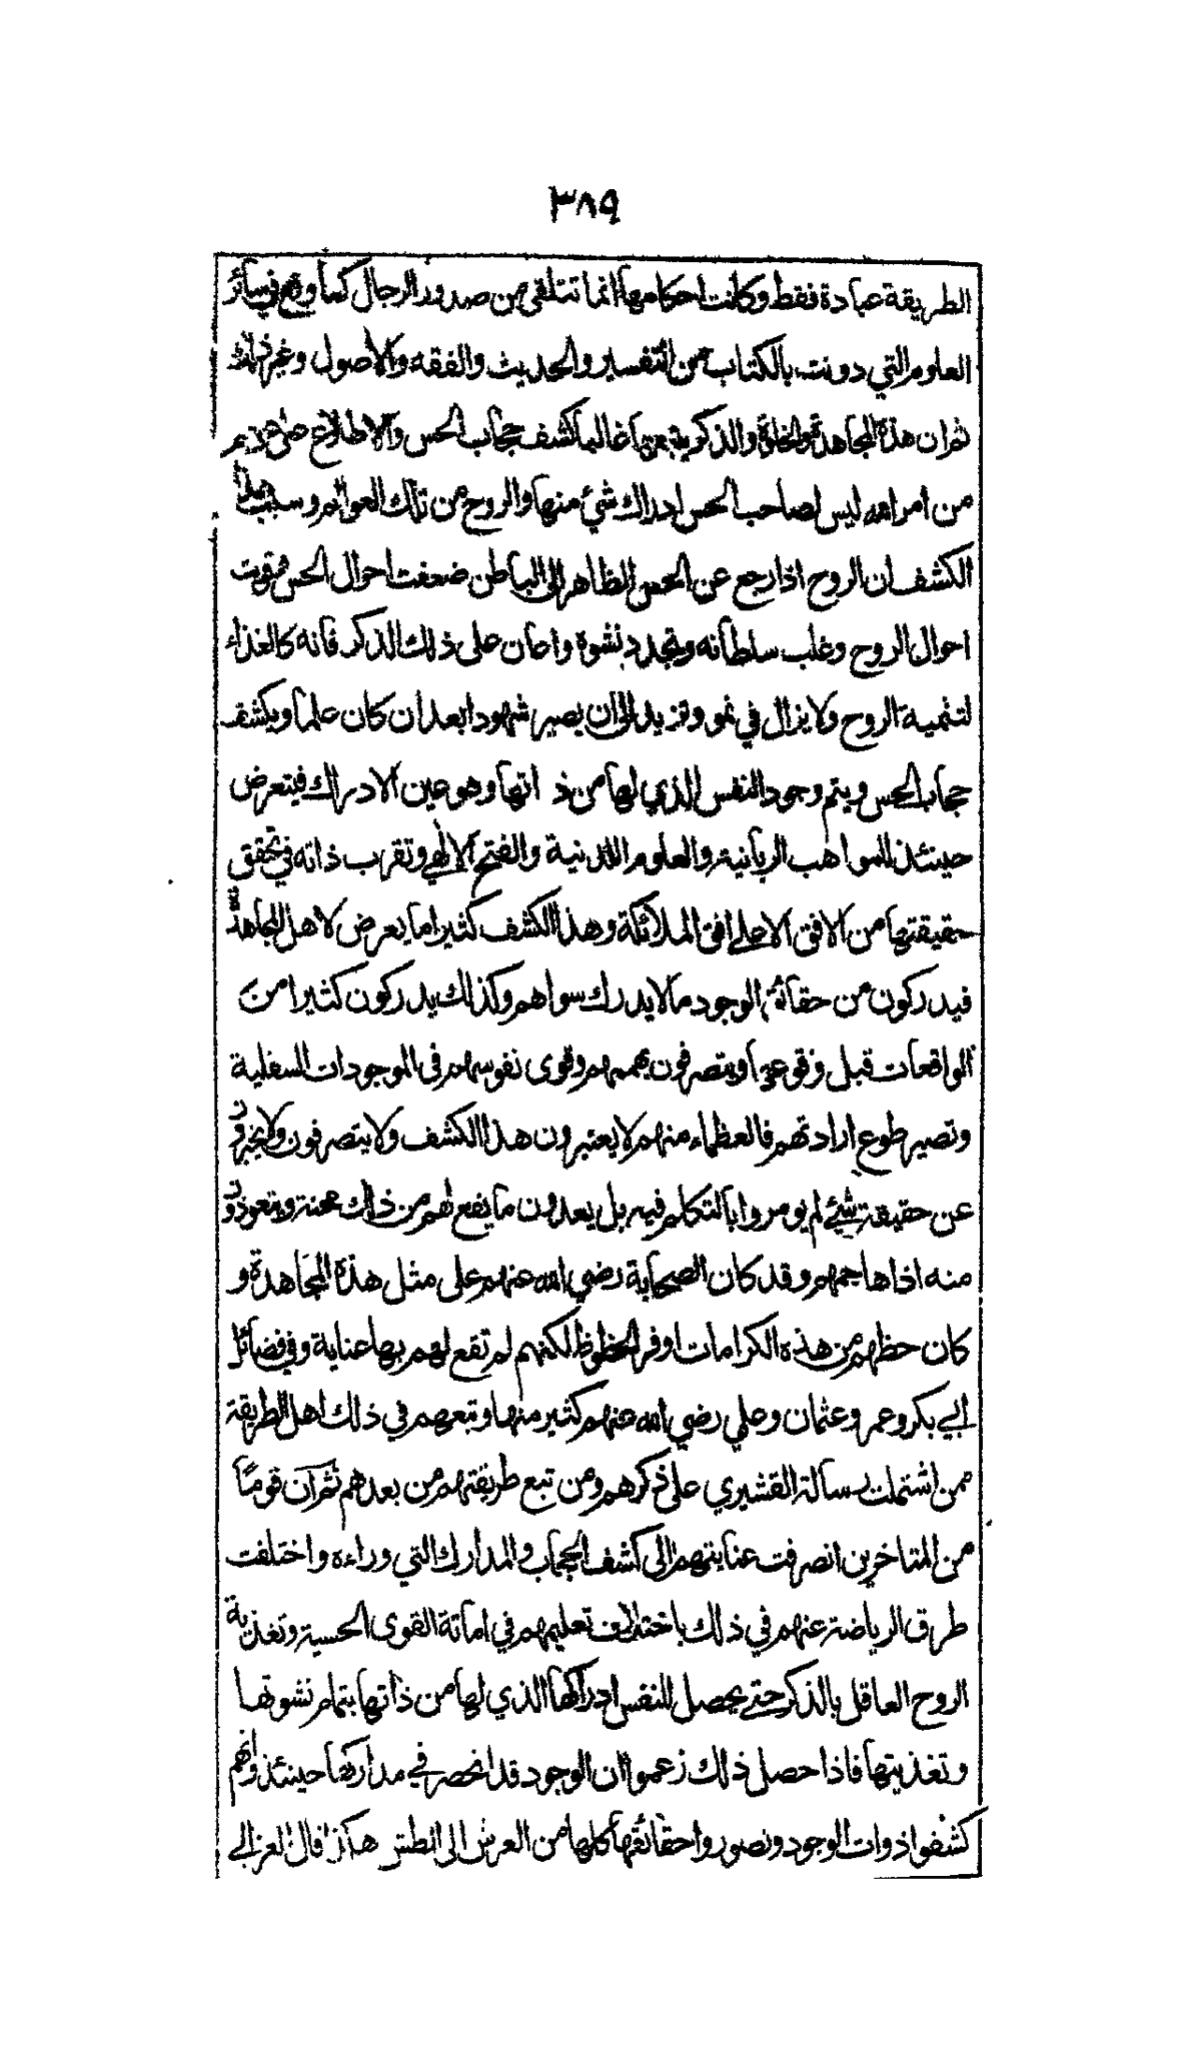 ٣٨٩
الطريقة عبادة فقط وكانت احكامها انما تتلقى من صدور الرجال كما وقع في سائر
العلوم التي دونت بالكتاب من التفسير والحديث والفقه والاصول وغير ذلك
ثم ان هذه المجاهدة والخلوة والذكر يتبعها غالبا كشف حجاب الحس والاطلاع على عوالم
من امر الله ليس لصاحب الحس ادراك شئ منها والروح من تلك العوالم وسبب هذا
الكشف ان الروح اذا رجع عن الحس الظاهر الى الباطن ضعفت احوال الحس وقويت
احوال الروح وغلب سلطانه وتجدد نشوة واعان على ذلك الذكر فانه كالغذاء
لتنمية الروح ولا يزال في نمو وتزيد الى ان يصير شهودا بعد ان كان علما ويكشف
حجاب الحس ويتم وجود النفس الذي لها من ذاتها وهو عين الادراك فيتعرض
حينئذ للمواهب الربانية والعلوم اللدنية والفتح الالهي وتقرب ذاته في تحقق
حقيقتها من الافق الاعلى افق الملائكة وهذا الكشف كثيرا ما يعرض لاهل المجاهدة
فيدركون من حقائق الوجود ما لا يدرك سواهم وكذلك يدركون كثيرا من
الواقعات قبل وقوعها ويتصرفون بهممهم وقوى نفوسهم في الموجودات السفلية
وتصير طوع ارادتهم فالعظماء منهم لا يعتبرون هذا الكشف ولا يتصرفون ولا يخبرون
عن حقيقة شئ لم يومروا بالتكلم فيه بل يعدون ما يقع لهم من ذلك محنة ويتعوذون
منه اذا هاجمهم وقد كان الصحابة رضي الله عنهم على مثل هذه المجاهدة و
كان حظهم من هذه الكرامات اوفر الحظوظ لكنهم لم تقع لهم بها عناية وفي فضائل
ابي بكر وعمر وعثمان وعلي رضي الله عنهم كثير منها وتبعهم في ذلك اهل الطريقة
ممن اشتملت رسالة القشيري على ذكرهم ومن تبع طريقتهم من بعدهم ثم ان قوما
من المتاخرين انصرفت عنايتهم الى كشف الحجاب والمدارك التي وراءه واختلفت
طرق الرياضة عنهم في ذلك باختلاف تعليمهم في اماتة القوى الحسية وتغذية
الروح العاقل بالذكر حتى يحصل للنفس ادراكها الذي لها من ذاتها بتمام نشوتها
وتغذيتها فاذا حصل ذلك زعموا ان الوجود قد انحصر في مداركها حينئذ وانهم
كشفوا ذوات الوجود وتصوروا حقائقها كلها من العرش الى الطش هكذا قال الغزالي